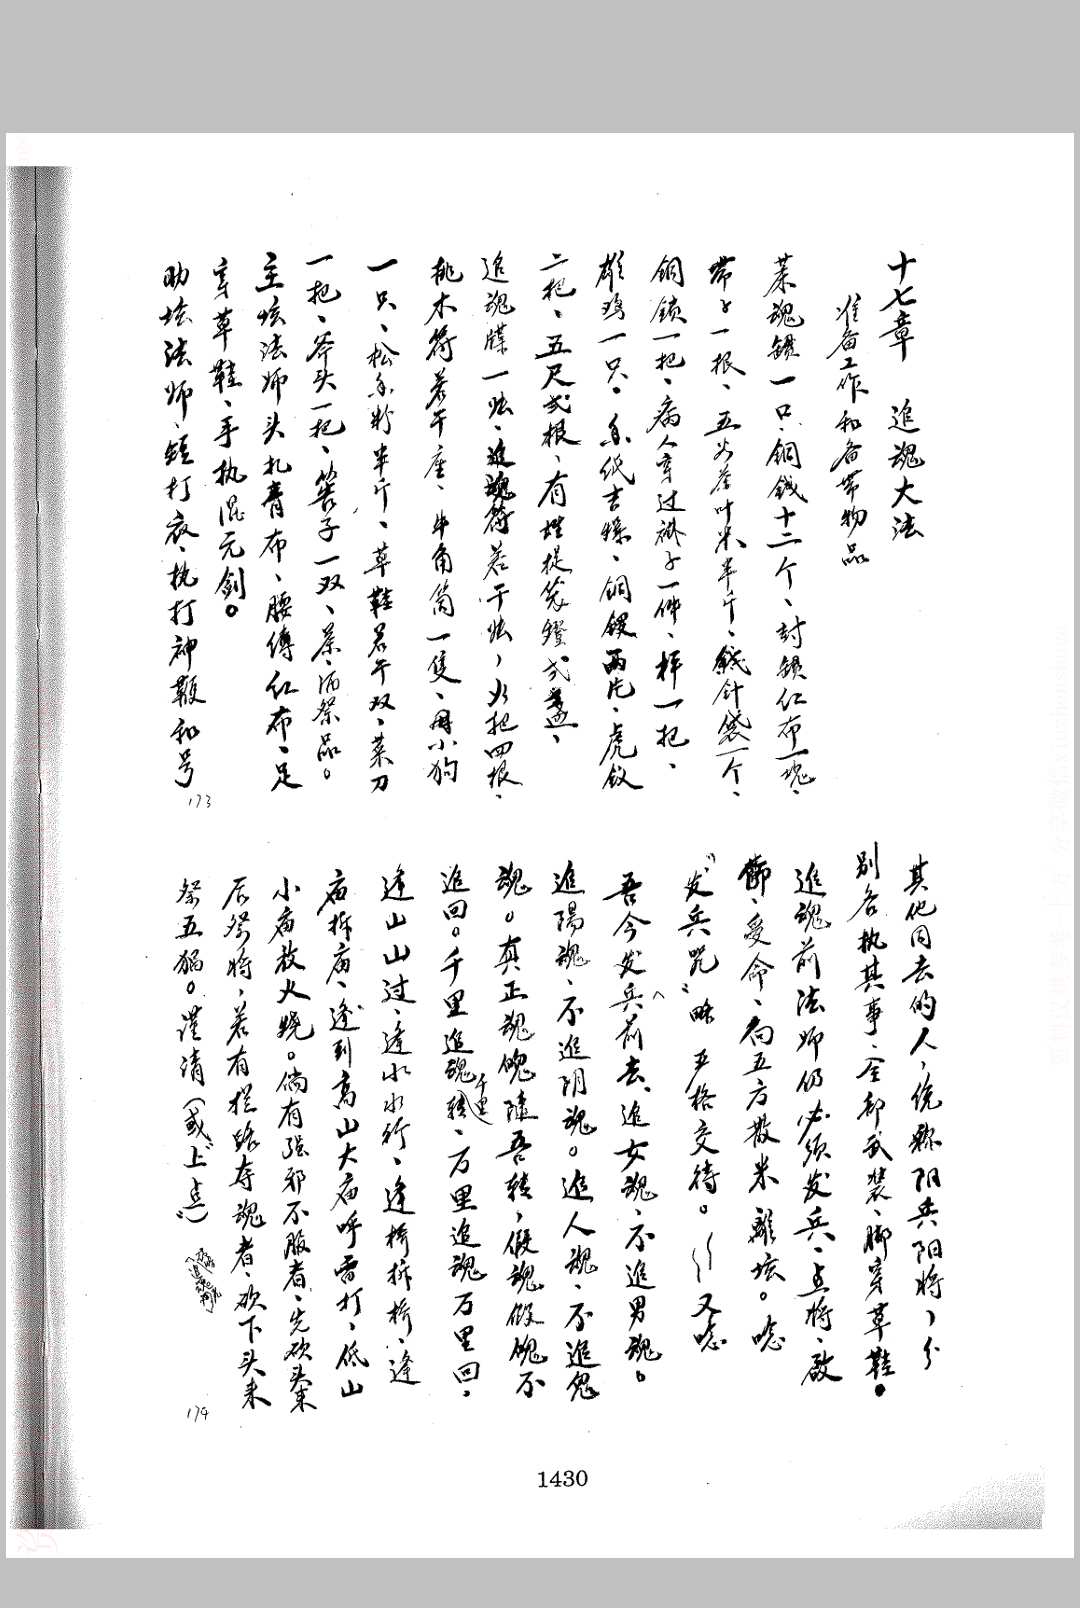 十七章 追魂大法
准备工作和备带物品
魂锁一只、铜钱十二个、封锁红布一块、
带子一根、五谷茶叶米半斤、钱针袋一个、
铜锁一把、病人穿过裤子一件、秤一把、
雄鸡一只、香纸吉爆、铜锣两片、虎钗
二把、五尺式根、有提袋灯式盏、
追魂牒一张、追魂符若干张,火把四根、
桃木符若干座、牛角筒一隻、用小狗
一只、松香粉半斤、草鞋若干双、菜刀
一把、斧头一把、箸子一双、茶、酒祭品。
主坛法师头扎青布、腰缚红布、足
穿草鞋、手执混元剑。
助坛法师、短打衣、执打神鞭和号
173
其他同去的人,统称阳兵阳将,分
别各执其事、全部武装、脚穿草鞋。
追魂前法师仍必须发兵、点将、敕
令、受命、向五方散米離坛。唸
“发兵咒”略 严格交待。又唸
吾今发兵前去、追女魂、不追男魂。
追陽魂、不追阴魂。追人魂、不追鬼
魂。真正魂魄隨吾转,假魂假魄不
追回。千里追魂千里转、万里追魂万里回,
逢山山过、逢水水行、逢桥拆桥、逢
庙拆庙、逢到高山大庙呼雷打、低山
小庙放火烧。倘有强邪不服者、先砍头来
后祭将,若有拦路夺魂者、砍下头来
祭五猖。谨请(或“上点”)
174
1430